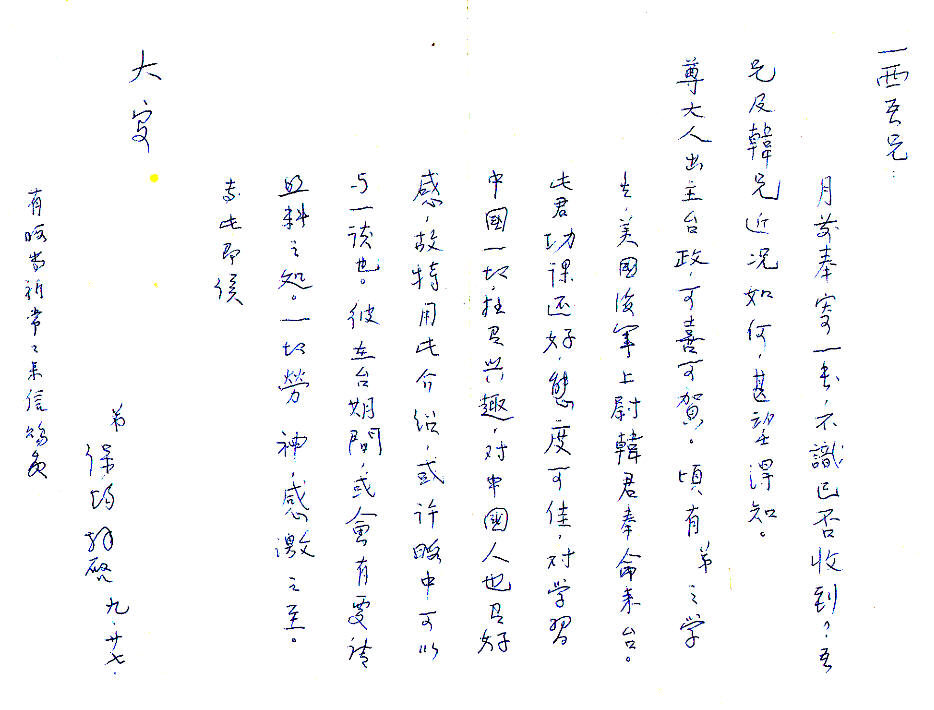 一西吾兄：
月前奉寄一书，不識已否收到？吾
兄及韓兄近况如何，甚望淂知。
尊大人出主台政，可喜可賀。頃有弟之学
生，美國後軍上尉韓君奉命来台。
此君功课还好，態度可佳，对学習
中國一切，极具兴趣，对中國人也具好
感，故特用此介绍，或许暇中可以
与一谈也。彼在台期間，或会有要请
照料之处。一切勞神，感激之至。
专此即候
大安
弟
保均拜啓 九.廿七.
有暇尚祈常々来信